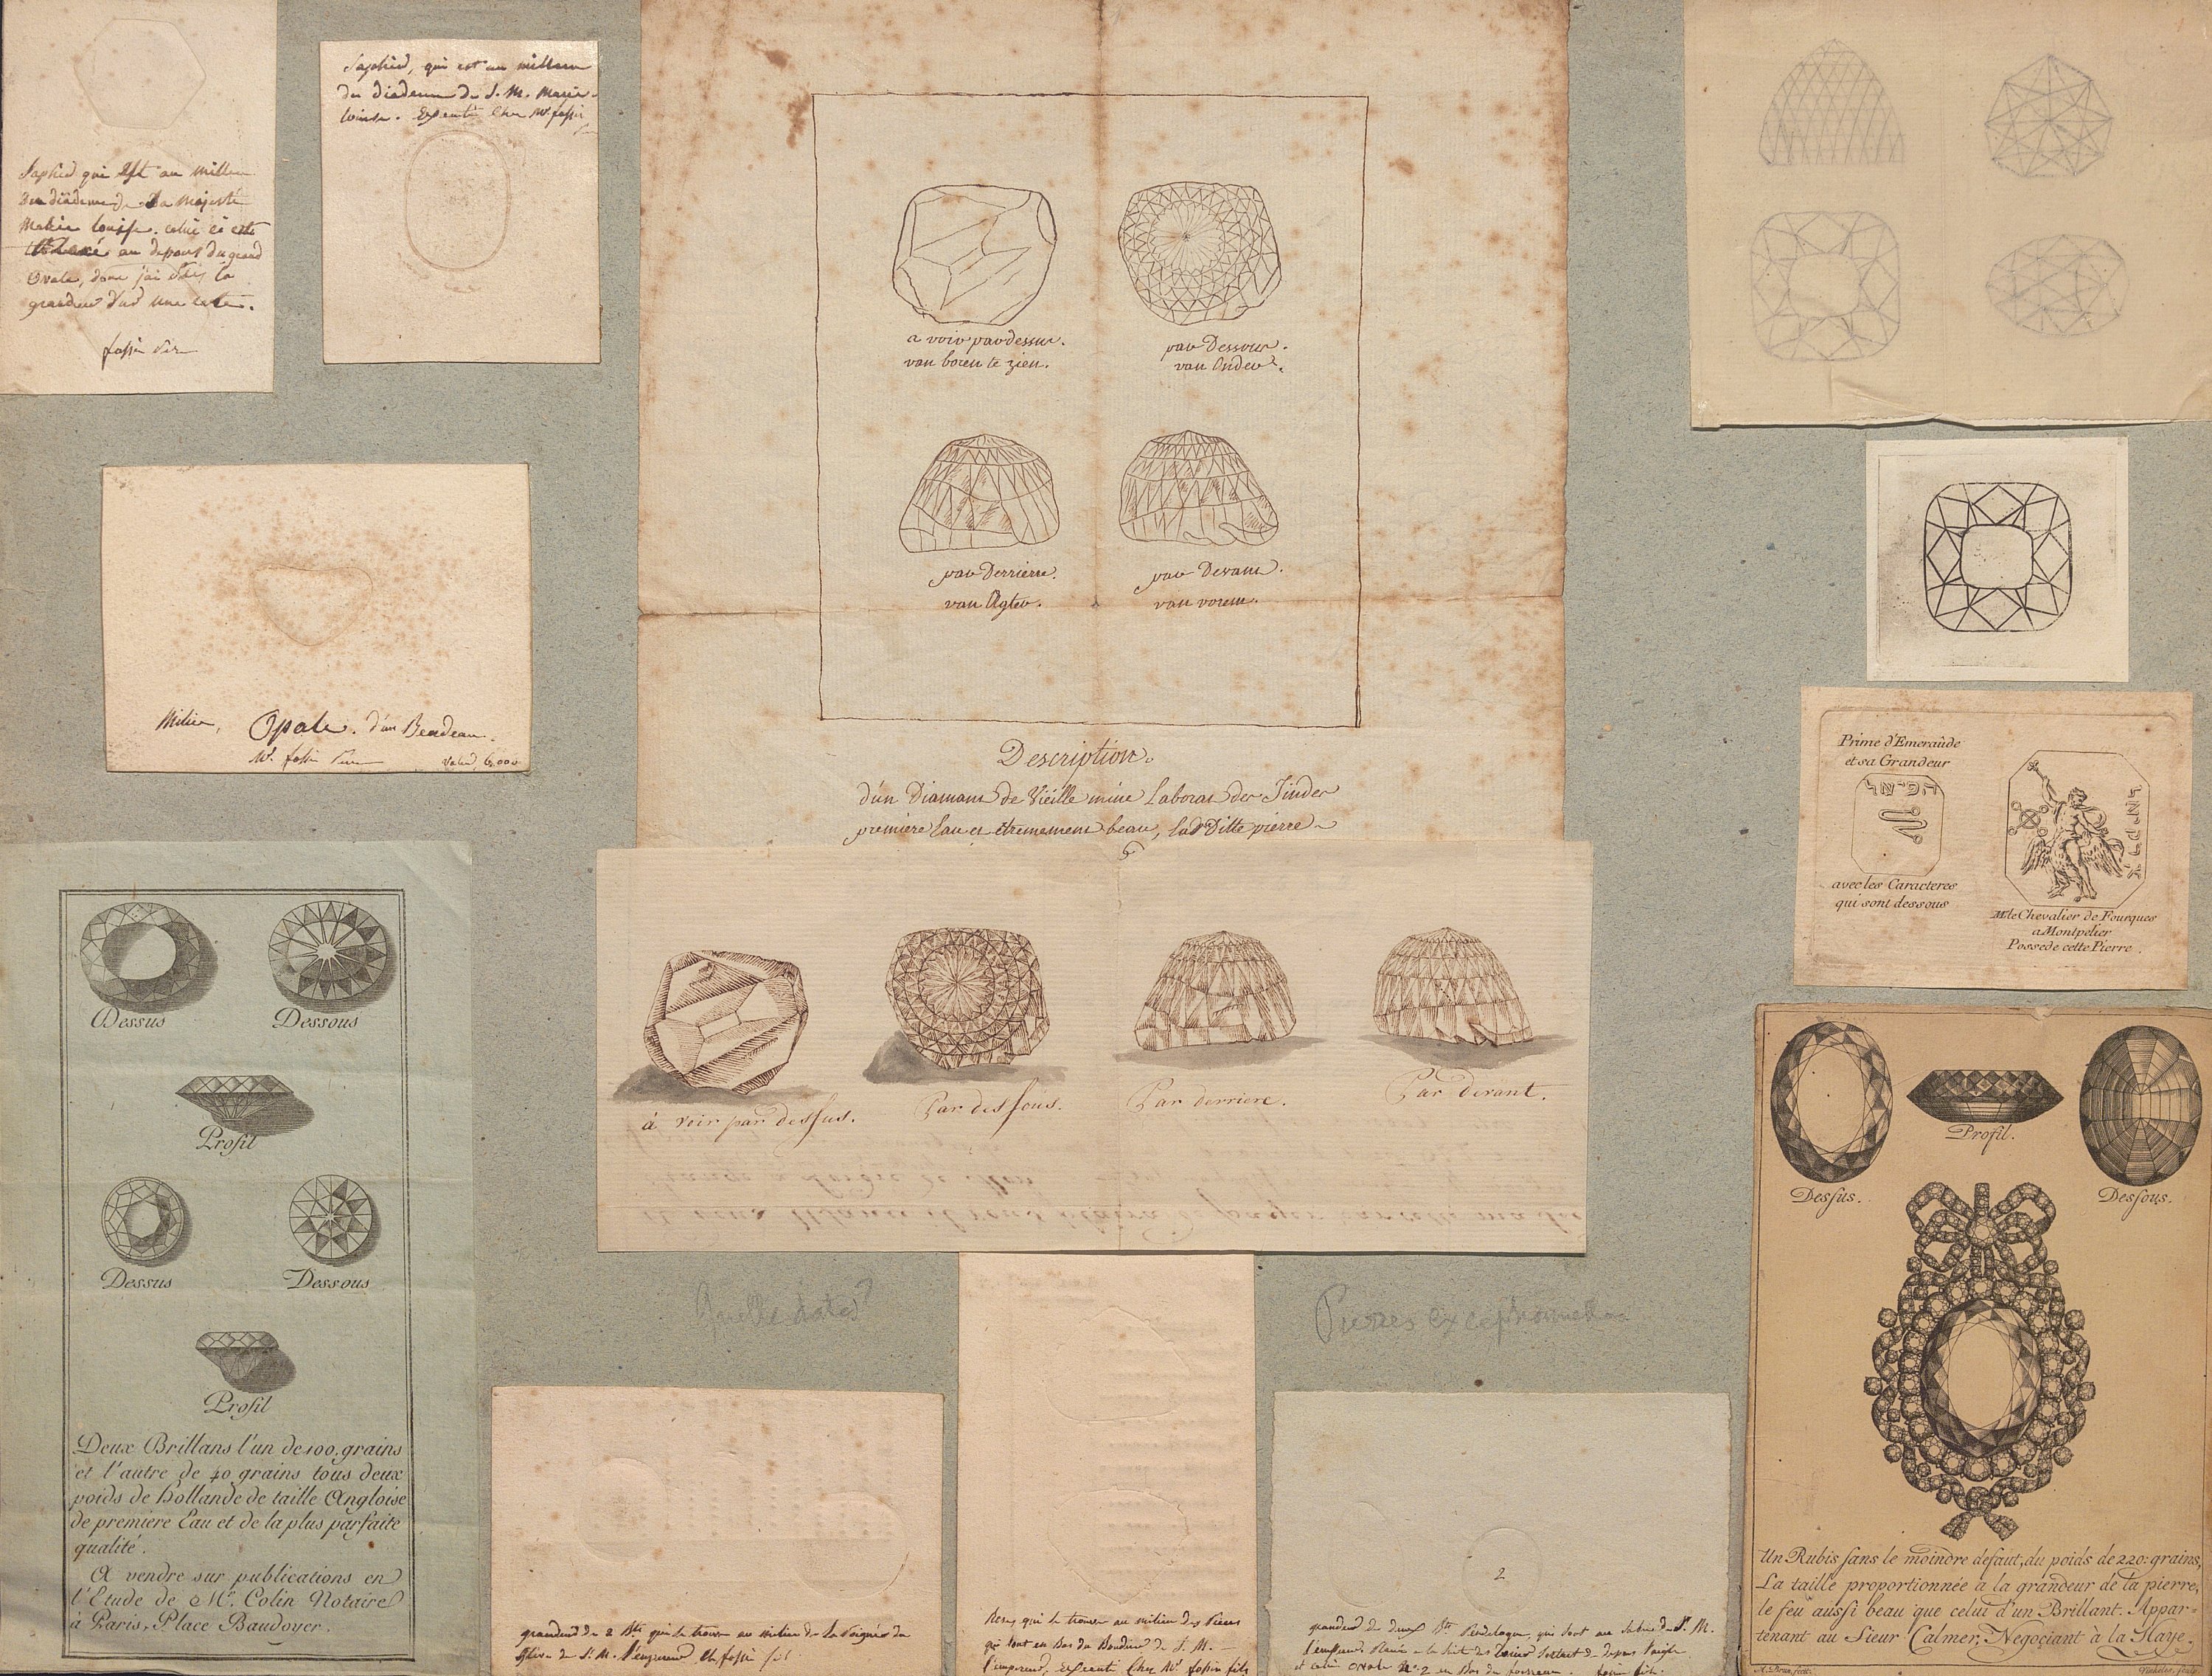 Saphir qui est au milieu
du diadême de Sa Majesté
Marie louise. celui ci est
au depens du grand
Ovale, dont j'ai la
grandeur sur une carte.
fossin père
Saphir, qui est au milieu
du diademe de S. M. Marie
louise. Executé Chez Mr. fossin
Milieu, Opale. d'un Bandeau.
Mr. fossin Père
valeur 6,000
a voir par dessus.
van boven te zien.
par Dessous.
van Onder.
par Derriere.
van Agter.
par Devant.
van vorens.
Description.
d'un Diamant de Vieille mine Laboras der Jinder
première Eau et étremement beau, ladDitte pierre
à voir par dessus.
Par dessous.
Par derriere.
Par devant.
Prime d'Emeraude
et sa Grandeur
הפיאל
avec les Caracteres
qui sont dessous
Mr. le Chevalier de Fourques
a Montpelier
Possede cette Pierre.
Dessus
Dessous
Profil
Dessus
Dessous
Profil
Deux Brillans l'un de 100. grains
et l'autre de 40 grains tous deux
poids de Hollande de taille Angloise
de premiere Eau et de la plus parfaite
qualité.
A vendre sur publications en
l'Etude de Mr. Colin Notaire
à Paris, Place Baudoyer.
Dessus.
Profil.
Dessous.
Un Rubis sans le moindre defaut, du poids de 220: grains,
La taille proportionnée a la grandeur de la pierre,
le feu aussi beau que celui d'un Brillant. Appar-
tenant au Sieur Calmer, Negoçiant à la Haye.
Quelle date?
Pierres exceptionnelles
grandeur de 2 Bts. qui se trouve au milieu de la Poignée du
Glaive de S. M. l'Empereur Ch fossin fils
Roses qui se trouve au milieu des Pieces
qui sont en Bas du Baudrier de S. M.
l'empereur, executé Chez Mr. fossin fils
2
grandeur de deux Bts. Pendeloque, qui sont au Sabre de S. M.
l'empereur
et celui Ovale No. 2 en Bas du fourreau. fossin fils.